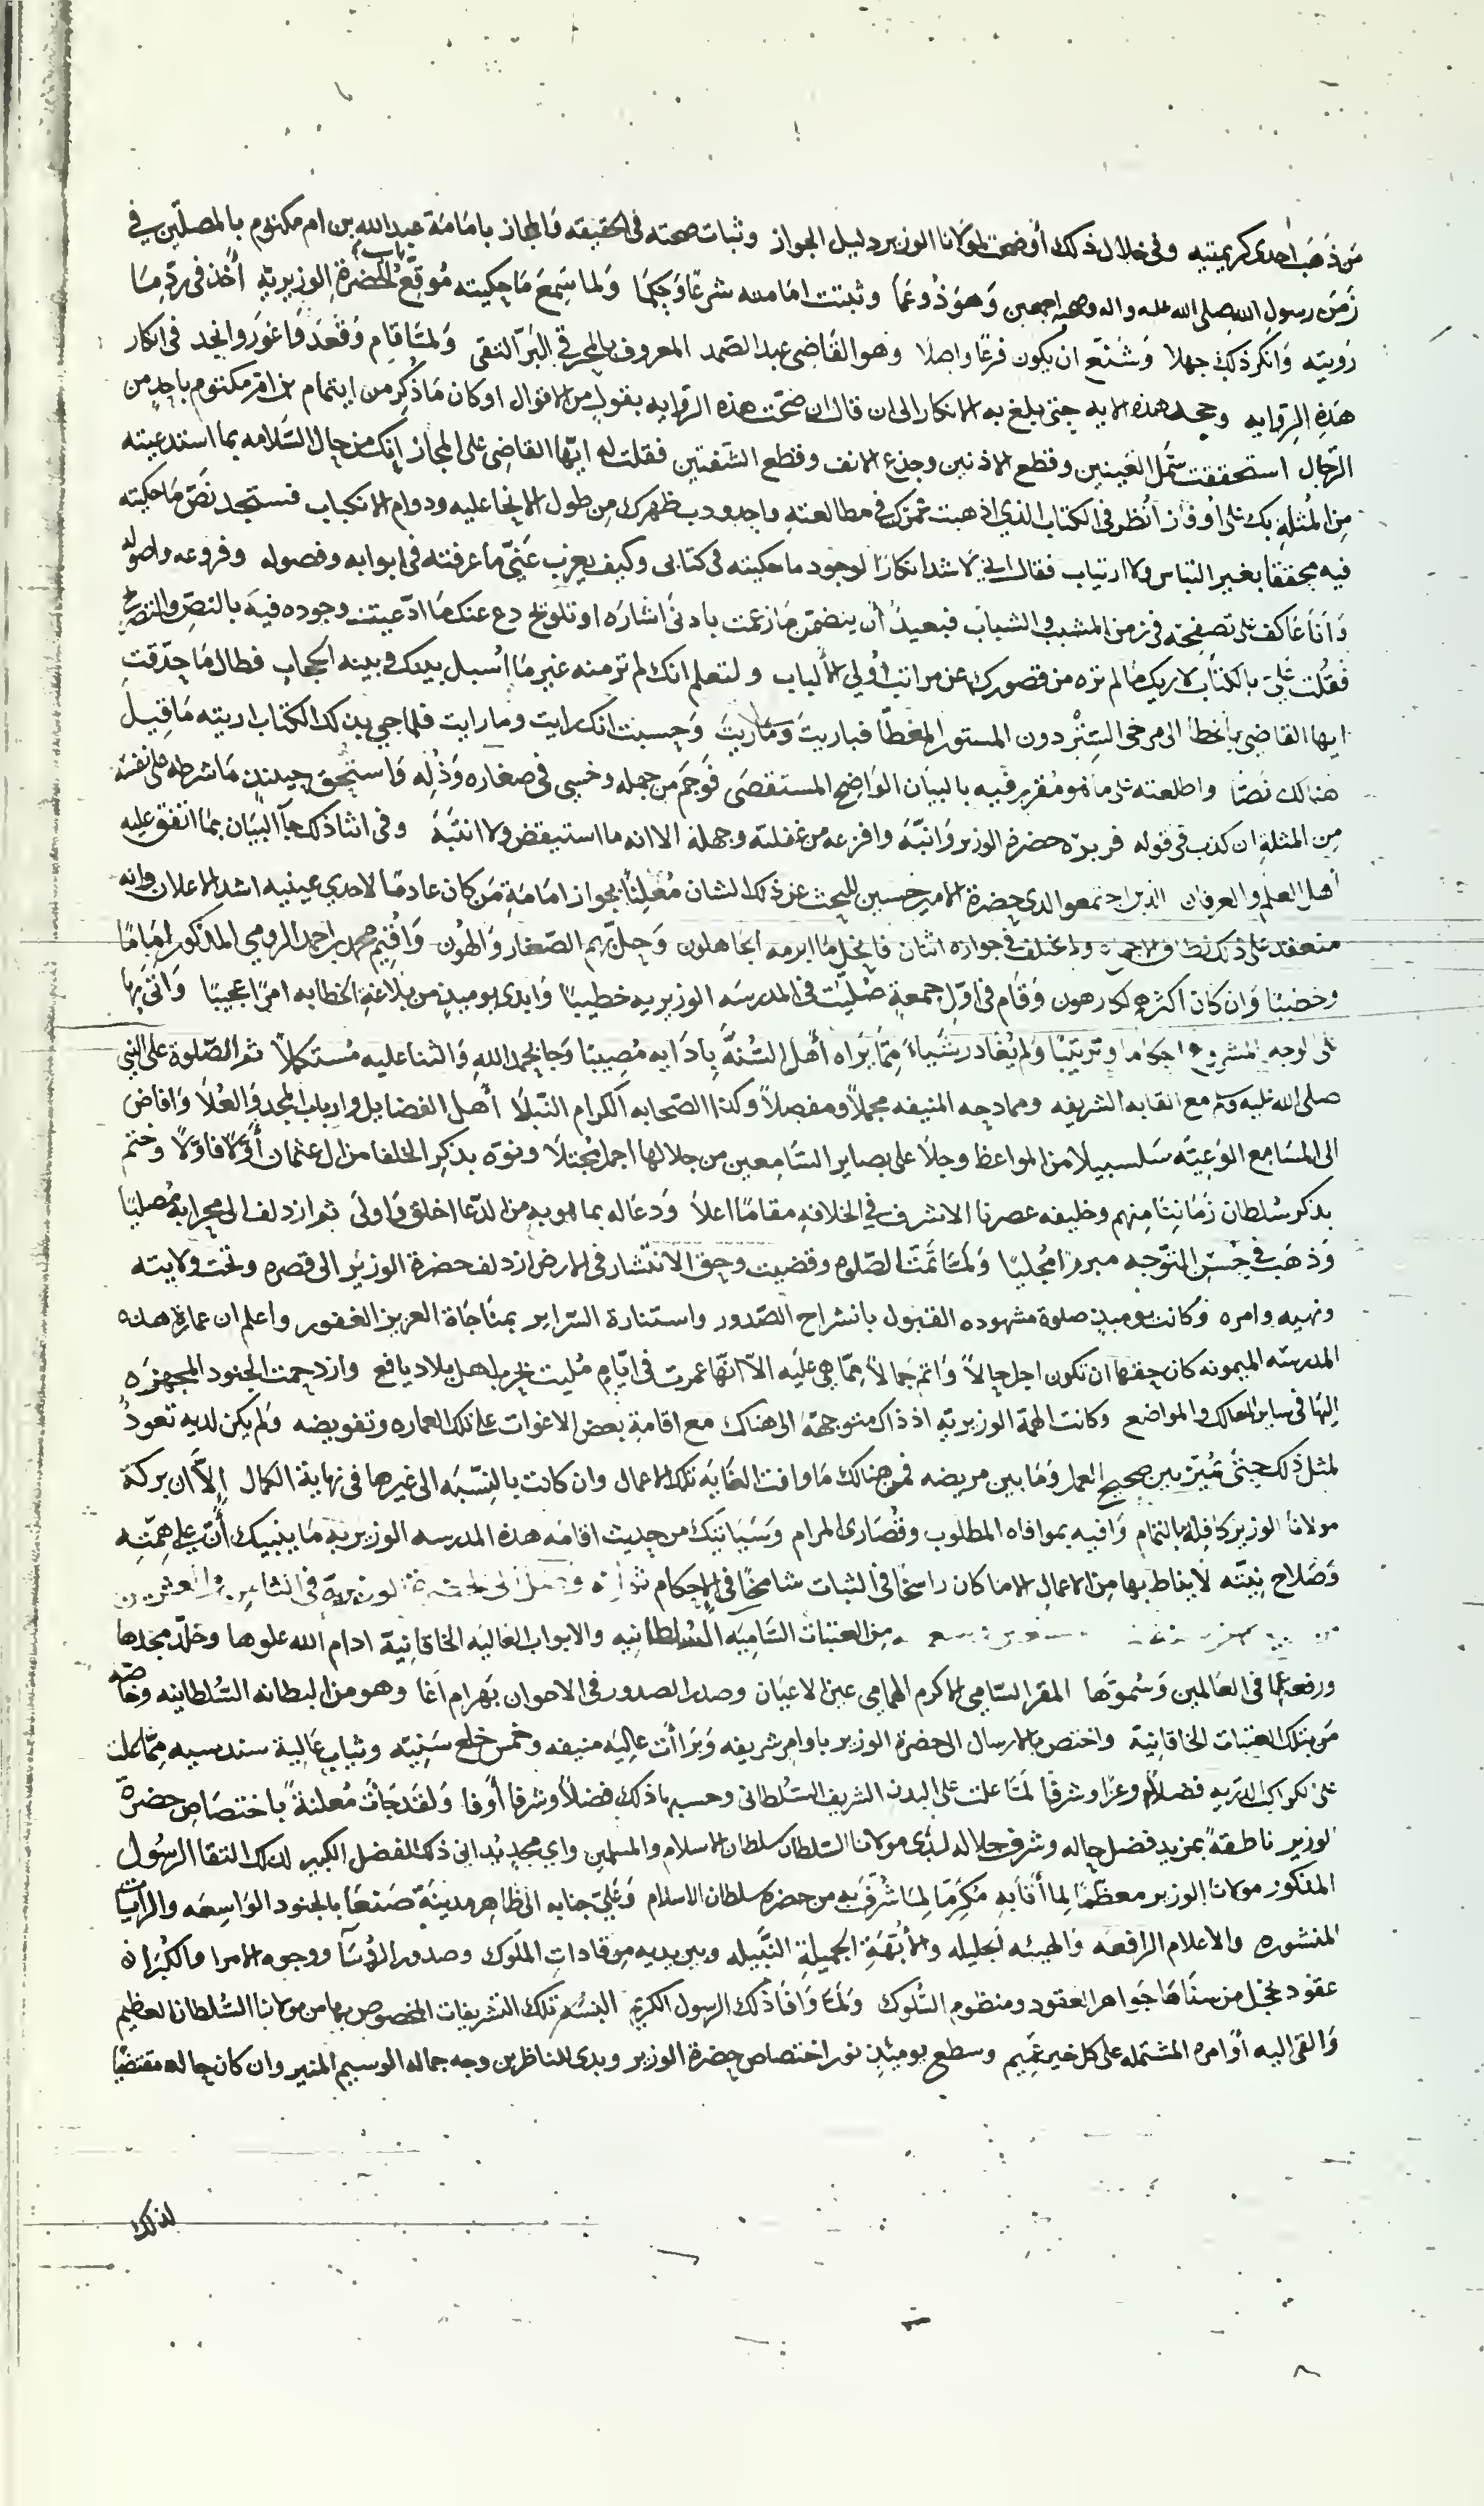 من ذهب احدى كريمتيه وفي خلال ذلك أوضحت لمولانا الوزير دليل الجواز وثبات صحته في الحقيقه والمجاز بامامة عبد الله بن ام مكتوم بالمصلين في
زمن رسول الله صلى الله عليه واله وصحبه اجمعين وهو ذو عما وثبتت امامته شرعا وحكما ولما سمع ما حكيته موقع الحضرة الوزيريه أخذ في رد ما
رويته وانكر ذلك جهلا وشنع ان يكون فرعا واصلا وهو القاضي عبد الصمد المعروف بالمحرقي البر التقي ولما قام وقعد واغور وانجد في انكار
هذه الروايه وجحد هذه الايه حتى بلغ به الانكار الى ان قال ان صحت هذه الروايه بقول من الاقوال او كان ما ذكر من ايتمام بن ام مكتوم باحد من
الرجال استحققت سمل العينين وقطع الاذنين وجذع الانف وقطع الشفتين فقلت له ايها القاضي على المجاز إنك من حال السلامه بما استدعيته
من المثله بك على أوفاز أنظر في الكتاب الذي اذهبت عمرك في مطالعته واحدودب ظهرك من طول الانحنا عليه ودوام الانكباب فستجد نص ما حكيته
فيه محققا بغير التباس ولا ارتياب فقال اني لاشد انكارا لوجود ما حكيته في كتابي وكيف يعزب عني ما عرفته في ابوابه وفصوله وفروعه واصوله
وانا عاكف على تصفحه في زمن المشيب والشباب فبعيد أن يتضمن ما زعمت بادنى اشاره او تلويح دع عنك ما ادعيت وجوده فيه بالنص والتصريح
فقلت علي بالكتاب لاريك ما لم تره من قصورك عن مراتب أولي الألباب ولتعلم انك لم تر منه غير ما اسبل بينك وبينه الحجاب فطال ما حدقت
ايها القاضي بالخطا الى مرخى الستر دون المستور المغطا فباريت وماريت وحسبت انك رايت وما رايت فلما جي بذلك الكتاب اريته ما قيل
هنالك نصا واطلعته على ما هو مقرر فيه بالبيان الواضح المستقصى فوجم من جهله وخسي في صغاره وذله واستحق حينئذ ما شرطه على نفسه
من المثلة ان كذب في قوله حضرة الوزير وانبه وافزعه من غفلته وجهله الا انه ما استيقض ولا انتبه وفي اثنا ذلك جآ البيان بما اتفق عليه
أهل العلم والعرفان الذين اجتمعوا لدى حضرة الامير حسين للبحث عن ذلك الشان معلنا بجواز امامة من كان عادما لاحدى عينيه اشد الاعلان وانه
منعقد على ذلك ولا يختلف في جوازه اثنان فانحل ما ابرمه الجاهلون وحل بهم الصغار والهون واقيم محمد بن احمد الرومي المذكور اماما
وخطيبا وان كان أكثرهم لكارهون وقام في اول جمعة صليت في المدرسه الوزيريه خطيبا وابدى يوميذ من بلاغة الخطابه امرا عجيبا وأتى بها
على الوجه المشروع احكاما وترتيبا ولم يغادر شيا مما يراه أهل السنه بادابه مصيبا وجا بحمد الله والثنا عليه مستكملا ثم الصلوة على النبي
صلى الله عليه وسلم مع القابه الشريفه وممادحه المنيفه مجملا ومفصلا وكذا الصحابه الكرام النبلا أهل الفضايل وارباب المجد والعلا وافاض
الى المسامع الوعيه سلسبيلا من المواعظ وجلا على بصاير السامعين من جلالها اجمل مجتلا ونوه بذكر الخلفا من ال عثمان أولا فاولا وختم
بذكر سلطان زماننا منهم وخليفه عصرنا الاشرف في الخلافه مقاما اعلا ودعا له بما هو به من الدعا اخلق واولى ثم ازدلف الى محرابه مصليا
وذهب في حسن التوجه مبرزا مجليا ولما تمت الصلوه وقضيت وحق الانتشار في الارض ازدلف حضرة الوزير الى قصره وتخت ولايته
ونهيه وامره وكانت يوميذ صلوة مشهوده القبول بانشراح الصدور واستنارة السراير بمناجاة العزيز الغفور واعلم ان عمارة هذه
المدرسه الميمونه كان حقها ان تكون اجل حالا واتم جمالا مما هي عليه الا انها عمرت في ايام مليت بحرب اهل بلاد يافع وازدحمت الجنود المجهزه
اليها في ساير المسالك والمواضع وكانت الهمة الوزيريه اذ ذاك متوجهة الى هناك مع اقامة بعض الاغوات على تلك العماره وتفويضه ولم يكن لديه تعود
لمثل ذلك حتى تميز بين صحيح العمل وما بين مريضه فمن هنالك ما وافت الغايه تلك الاعمال وان كانت بالنسبه الى غيرها في نهاية الكمال إلا ان بركة
مولانا الوزير كافله بالتمام وافيه بموافاه المطلوب وقصارى المرام وسياتيك من حديث اقامه هذه المدرسه الوزيريه ما ينبيك أن علي همته
وصلاح نيته لا يناط بها من الاعمال الا ما كان راسخا في الثبات شامخا في الاحكام الوزيرية في الثامن والعشرين
من العتبات الساميه السلطانيه والابواب العاليه الخاقانية ادام الله علوها وخلد مجدها
ورفعها في العالمين وسموها المقر السامي الاكرم الهمامي عين الاعيان وصدر الصدور في الاحوان بهرام آغا وهو من البطانه السلطانيه وخاصه
من بتلك العتبات الخاقانية واختص بالارسال الى حضرة الوزير باوامر شريفه وبراأت عاليه منيفه وخمس خلع سنيه وثياب غالية سندسيه مما علت
على الكواكب الدريه فضلا وعزا وشرفا لما علت على البدن الشريف السلطاني وحسبها ذلك فضلا وشرفا أوفا ولقد جات معلنة باختصاص حضرة
الوزير ناطقة بمزيد فضل حاله وشرف جلاله لدى مولانا السلطان سلطان الاسلام والمسلمين واي مجد يداني ذلك الفضل الكبير لذلك التقا الرسول
المذكور مولانا الوزير معظما لما أتا به مكرما لما شرف به من حضرة سلطان الاسلام جنابه الى ظاهر مدينة صنعا بالجنود الواسعه والرايات
المنشوره والاعلام الرافعه والهيئه الجليله والأبهة الجميلة النبيله وبين يديه من قادات الملوك وصدور الرؤسآ ووجوه الامرا والكبرا
عقود تخجل من سناها جواهر العقود ومنظوم السلوك ولما وافا ذلك الرسول الكريم البسه تلك التشريفات المخصوص بها من مولانا السلطان العظيم
والقى اليه أوامره المشتمله على كل خير عميم وسطع يوميذ نور اختصاص حضرة الوزير وبدى للناظرين وجه جماله الوسيم المنير وان كان حاله مقتضيا
لذلك